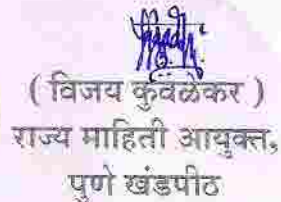 ( विजय कुवळेकर )
राज्य माहिती आयुक्त,
पुणे खंडपीठ